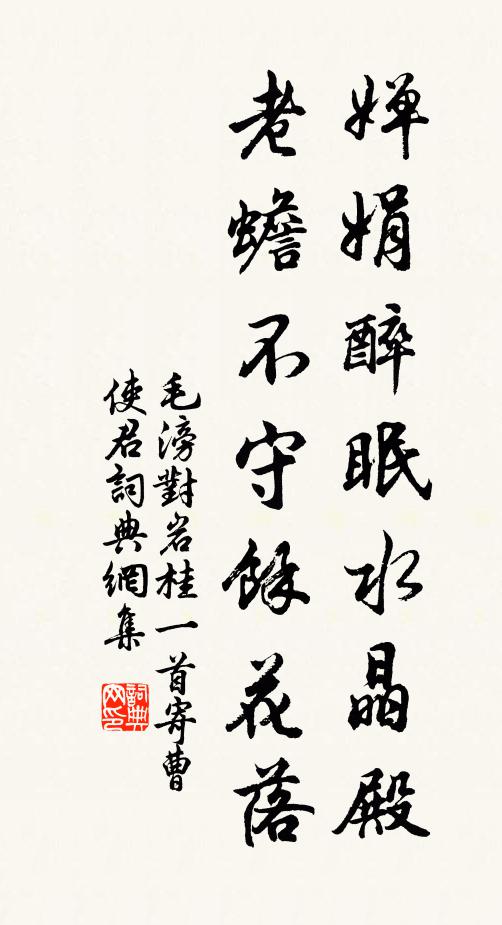 嬋娟醉眠水晶殿
老蟾不守餘花落
毛滂對岩桂一首寄曹
使君詞典網集
詞典
网印